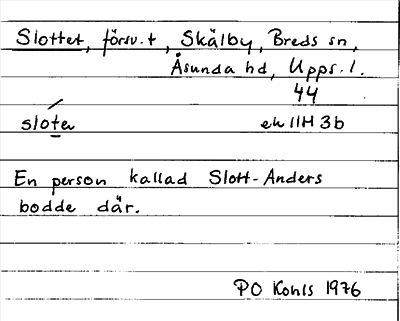 Slottet, försv.t, Skälby, Breds sn,
Åsunda hd, Upps. l.
44
slo´te̲r ek 11H 3b
En person kallad Slott-Anders
bodde där.
PO Kohls 1976